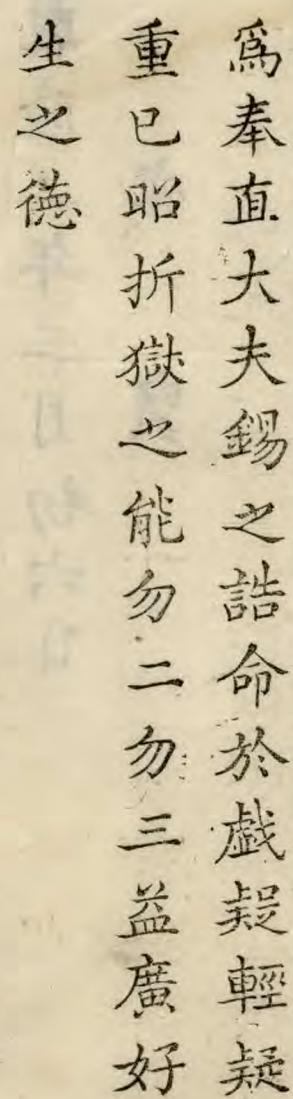 爲奉直大夫錫之誥命於戲疑輕疑
重已昭折獄之能勿二勿三益廣好
生之德